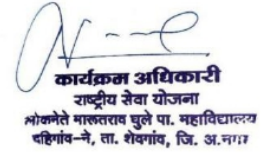 कार्यक्रम अधिकारी
राष्ट्रीय सेवा योजना
लोकनेते मारुतराव घुले पा. महाविद्यालय
दहिगांव-ने, ता. शेवगांव, जि. अ.नगर